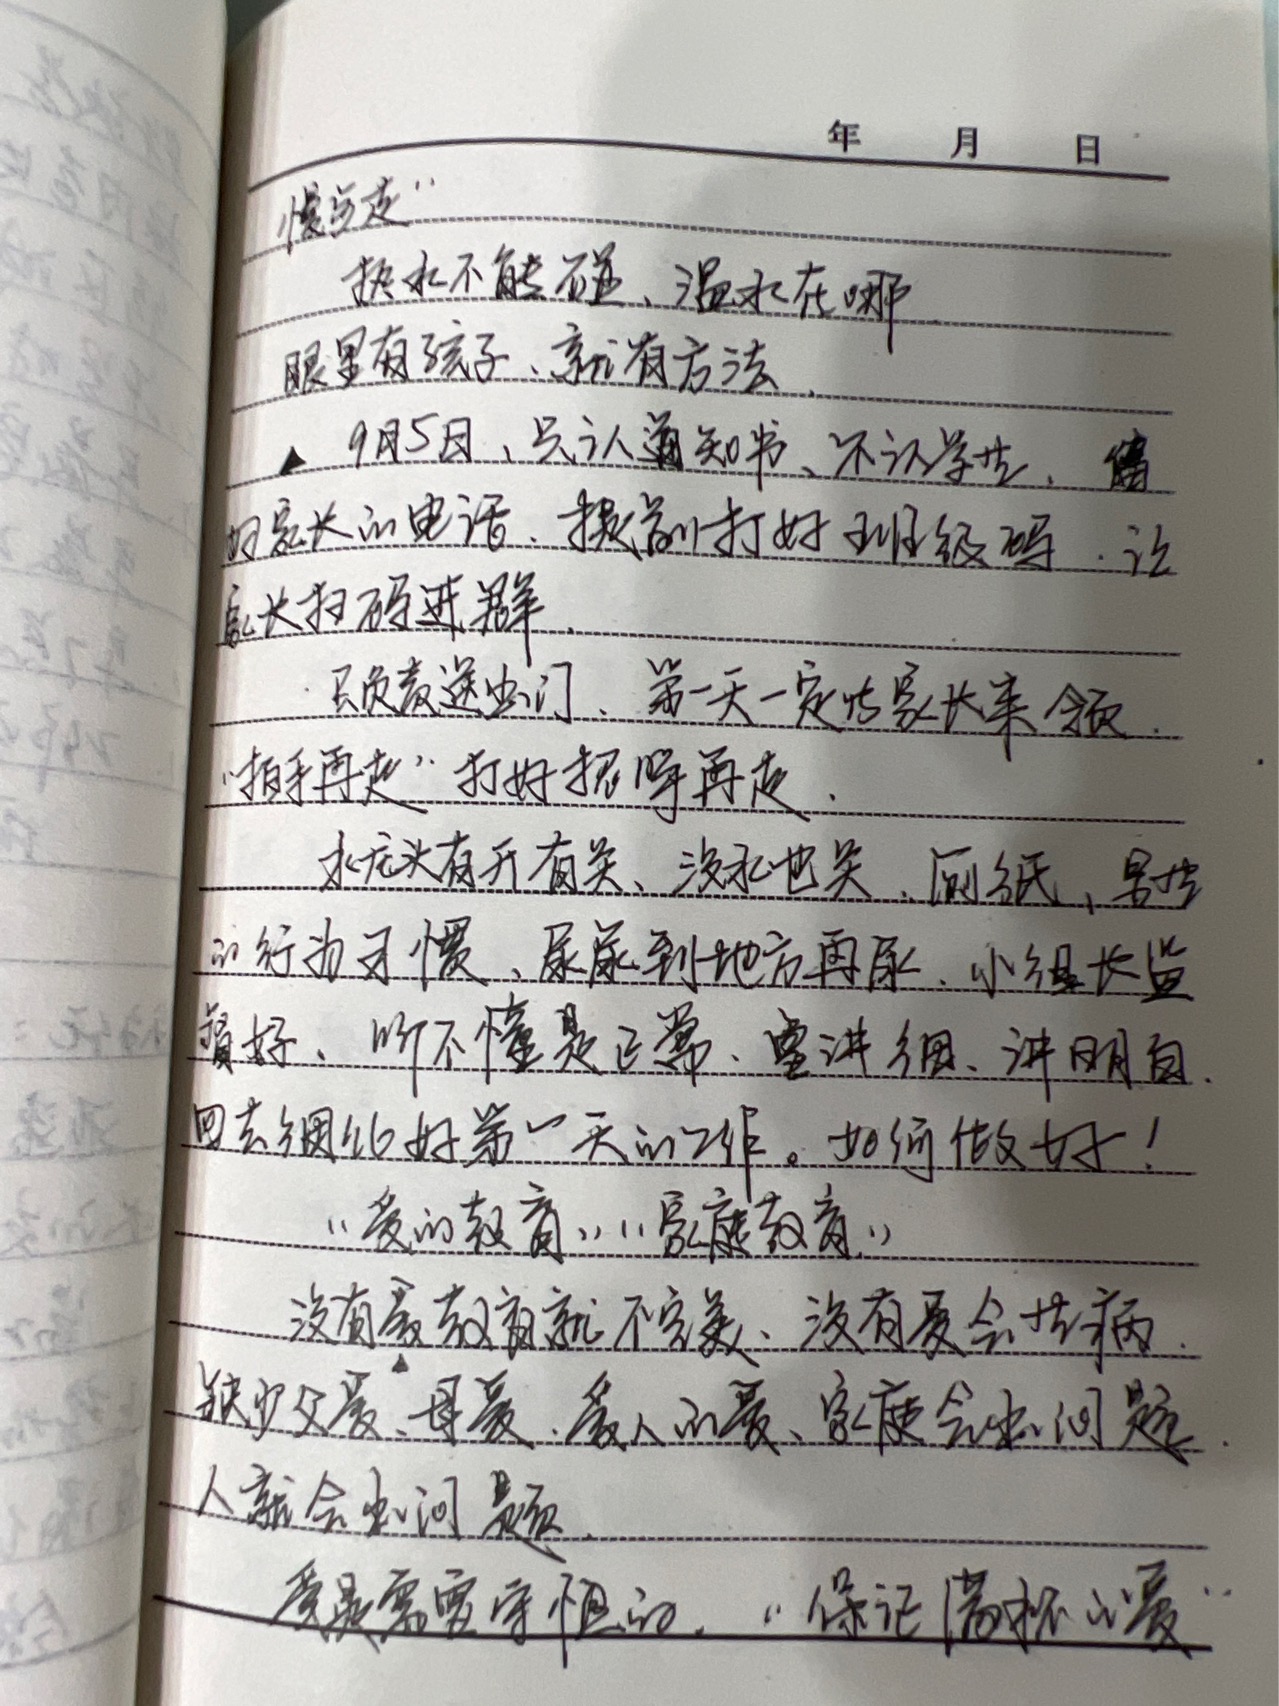 年 月 日
慢慢走"
热水不能碰、温水在哪
眼里有孩子、就有方法.
▲ 9月5日、只认通知书、不认学生、
好家长的电话、提前打好班级码、让
家长扫码进群.
只负责送出门、第一天一定让家长来领.
"拍手再走"打好招呼再走.
水龙头有开有关、没水也关、厕纸、男生
的行为习惯、尿尿到地方再尿、小组长监
督好、听不懂是正常、要讲细、讲明白.
回去细化好第一天的工作。如何做好!
"爱的教育""家庭教育"
没有爱教育就不完美、没有爱会生病.
缺少父爱、母爱、爱人的爱、家庭会出问题.
人就会出问题.
爱是需要守恒的."保证满杯的爱"